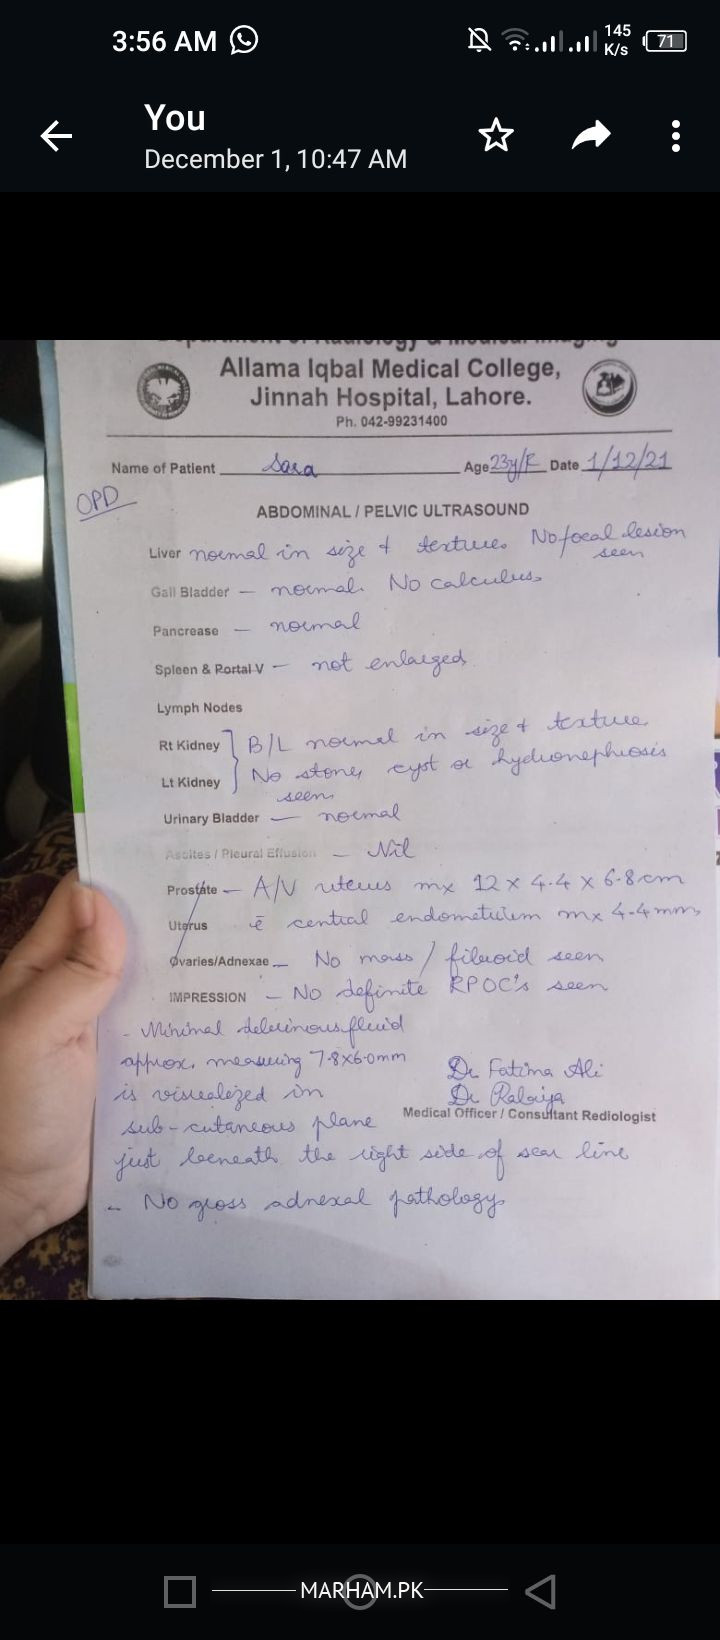 3:56 AM
145 K/s
71
You
December 1, 10:47 AM
Department of Radiology & Medical Imaging
Allama Iqbal Medical College,
Jinnah Hospital, Lahore.
Ph. 042-99231400
Name of Patient Sara Age 23y/F Date 1/12/21
OPD
ABDOMINAL / PELVIC ULTRASOUND
Liver normal in size & texture. No focal lesion seen
Gall Bladder – normal. No calculus.
Pancrease – normal
Spleen & Portal V – not enlarged
Lymph Nodes
Rt Kidney } B/L normal in size & texture.
Lt Kidney } No stone, cyst or hydronephrosis seen
Urinary Bladder – normal
Ascites / Pleural Effusion – Nil
Prostate – A/V uterus mx 12 x 4.4 x 6.8 cm
Uterus c̄ central endometrium mx 4.4 mm,
Ovaries/Adnexae – No mass / fibroid seen
IMPRESSION – No definite RPOC's seen
- Minimal fluid
approx. measuring 7.8x6.0mm
is visualized in
sub-cutaneous plane
just beneath the right side of scar line
Dr Fatima Ali
Dr Rabiya
Medical Officer / Consultant Rediologist
– No gross adnexal pathology
MARHAM.PK